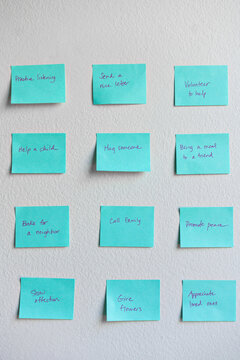 Practice listening
Send a
nice letter
Volunteer
to help
Help a child
Hug someone
Being a meal
to a friend
Bake for
a neighbor
Call family
Promote peace
Show
affection
Give
flowers
Appreciate
loved ones